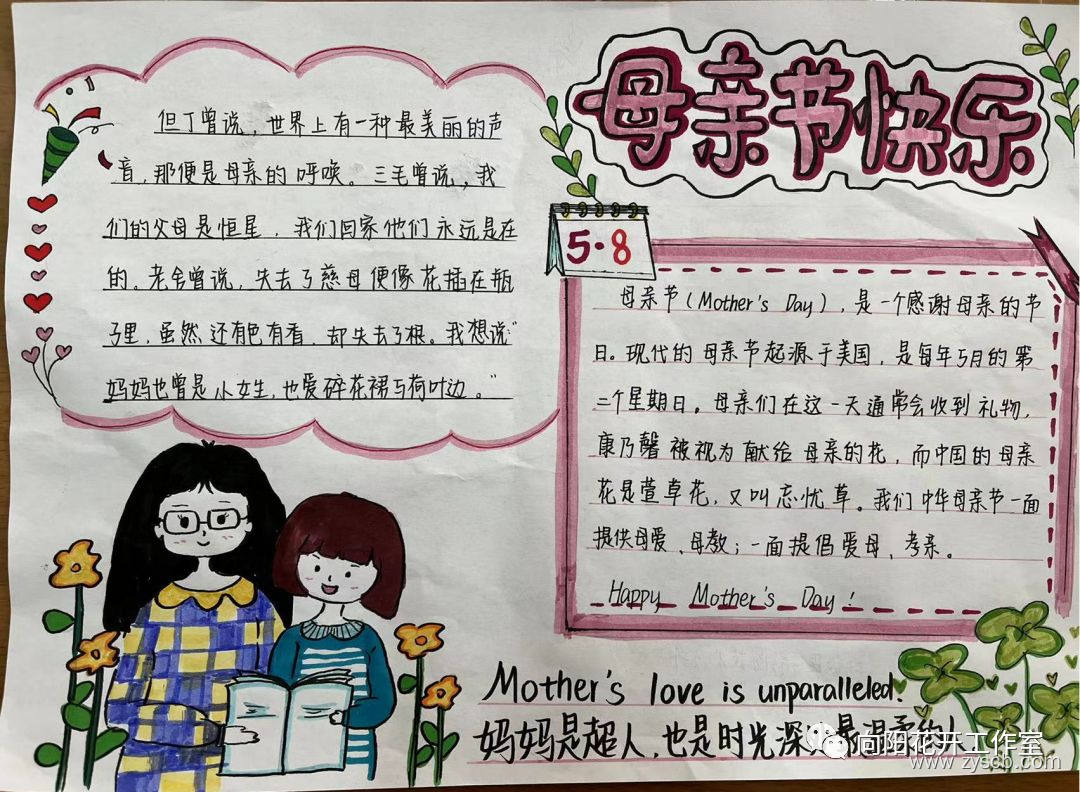 母亲节快乐
但丁曾说，世界上有一种最美丽的声
音，那便是母亲的呼唤。三毛曾说，我
们的父母是恒星，我们回家他们永远是在
的。老舍曾说，失去了慈母便像花插在瓶
子里，虽然还有色有香，却失去了根。我想说“
妈妈也曾是小女生，也爱碎花裙与荷叶边。”
5·8
母亲节（Mother's Day），是一个感谢母亲的节
日。现代的母亲节起源于美国，是每年5月的第
二个星期日。母亲们在这一天通常会收到礼物，
康乃馨被视为献给母亲的花，而中国的母亲
花是萱草花，又叫忘忧草。我们中华母亲节一面
提供母爱、母教；一面提倡爱母、孝亲。
Happy Mother's Day!
Mother's love is unparalleled.
妈妈是超人，也是时光深
向阳花开工作室
www.zyscb.com